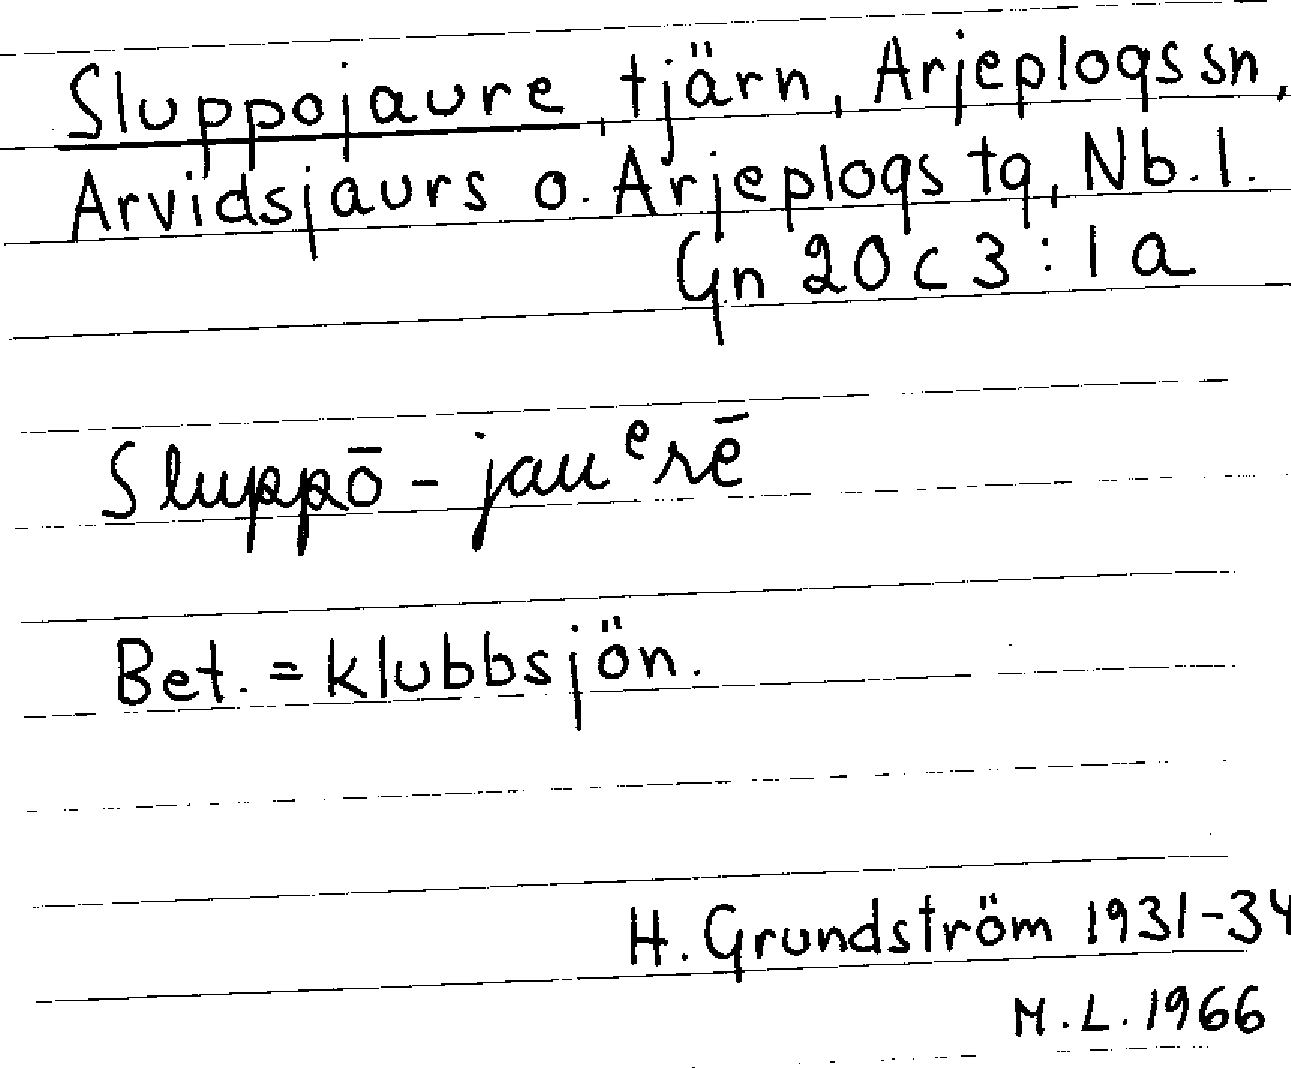 Sluppojaure, tjärn, Arjeplogs sn,
Arvidsjaurs o. Arjeplogs tg, Nb. l.
Gn 20 c 3 : 1 a
Sluppō - jauᵉrē
Bet. = klubbsjön.
H. Grundström 1931-34
M.L. 1966